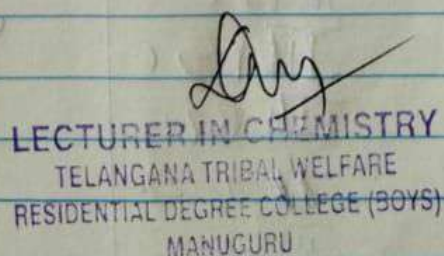 LECTURER IN CHEMISTRY
TELANGANA TRIBAL WELFARE
RESIDENTIAL DEGREE COLLEGE (BOYS)
MANUGURU